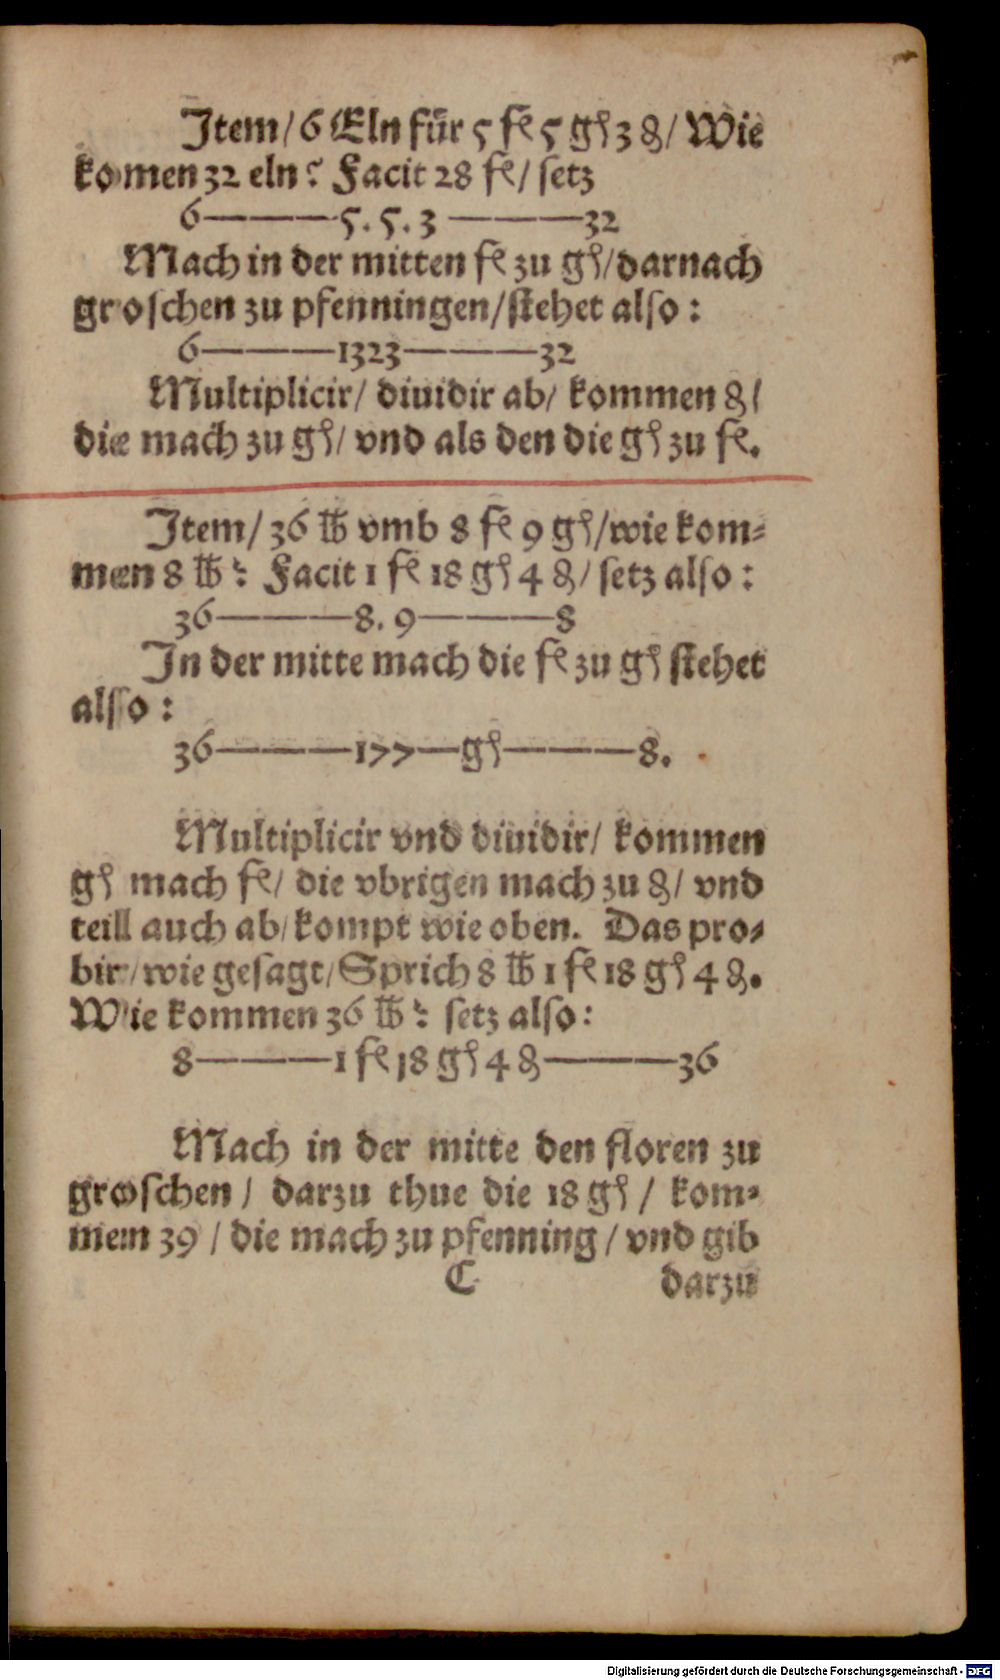 Item/ 6 Eln für 5 fl 5 gß 3 ₰/ Wie
komen 32 eln? Facit 28 fl/ setz
6———5. 5. 3 ———32
Mach in der mitten fl zu gß/ darnach
groschen zu pfenningen/ stehet also:
6———1323———32
Multiplicir/ diuidir ab/ kommen ₰/
die mach zu gß/ vnd als den die gß zu fl.
Item/ 36 ℔ vmb 8 fl 9 gß/ wie kom-
men 8 ℔? Facit 1 fl 18 gß 4 ₰/ setz also:
36———8. 9———8
In der mitte mach die fl zu gß stehet
also:
36———177—gß———8.
Multiplicir vnd diuidir/ kommen
gß mach fl/ die vbrigen mach zu ₰/ vnd
teill auch ab/ kompt wie oben. Das pro-
bir/ wie gesagt/ Sprich 8 ℔ 1 fl 18 gß 4 ₰.
Wie kommen 36 ℔? setz also:
8———1 fl 18 gß 4 ₰———36
Mach in der mitte den floren zu
groschen/ darzu thue die 18 gß/ kom-
men 39/ die mach zu pfenning/ vnd gib
C darzu
Digitalisierung gefördert durch die Deutsche Forschungsgemeinschaft - DFG